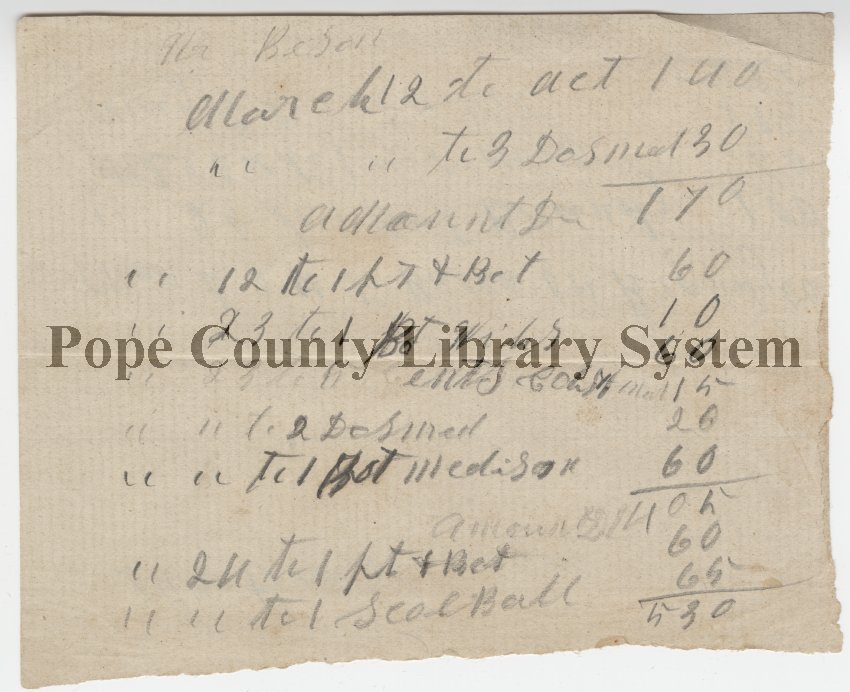 Mr Beson
March 12 to act 1 40
" " to 3 Dosmed 30
aMounnt Du 1 70
" 12 to 1 pt & Bot 60
" 23 to 1 Bot 10
60
Pope County Library System
" 23 to cents Cash Med 15
" " to 2 Dosmed 20
" " to 1 Bot medison 60
Amount 4 05
" 24 to 1 pt & Bot 60
" " to 1 Seal Ball 65
5 30